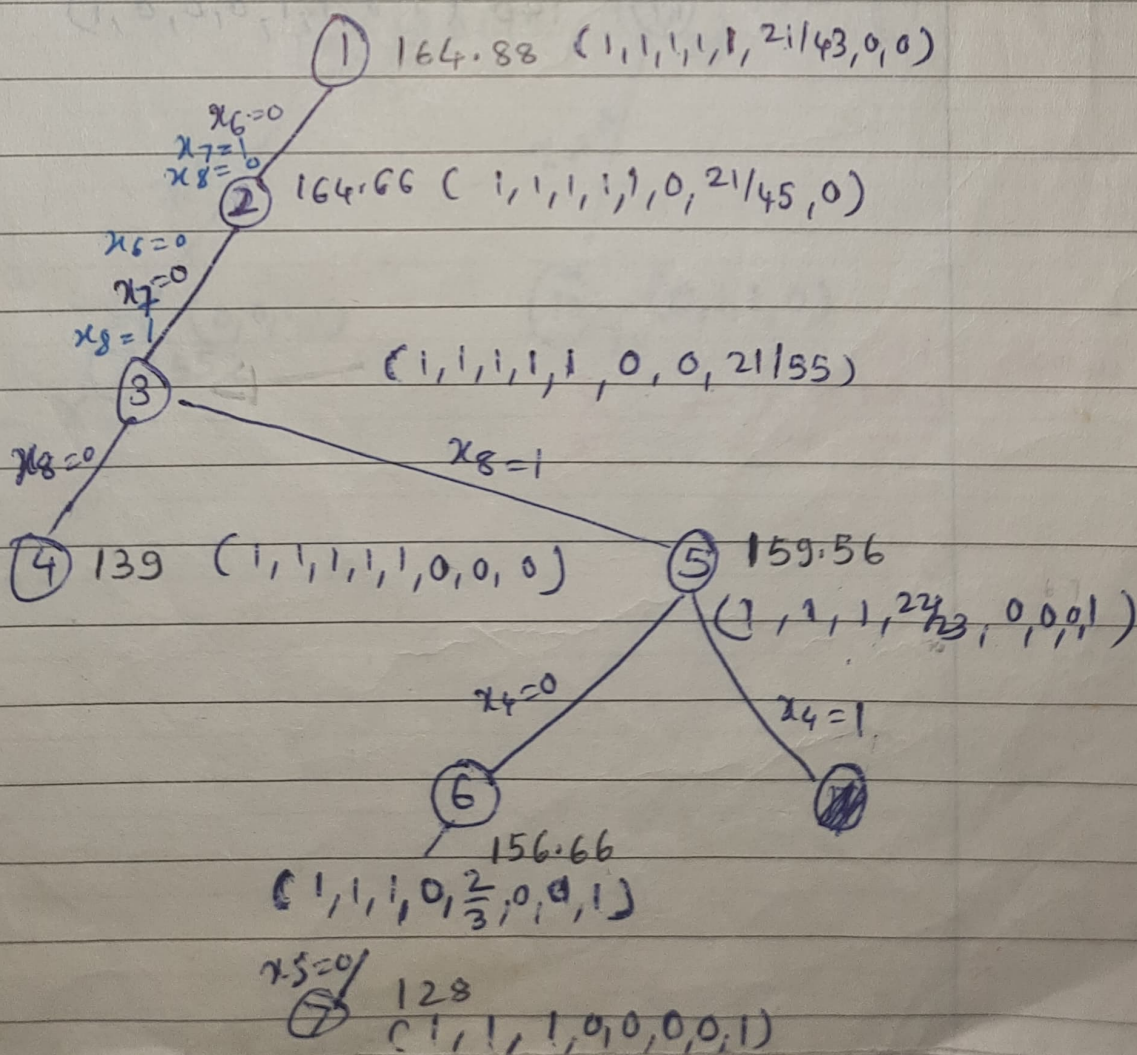 1 164.88 (1,1,1,1,1,21/43,0,0)
x6=0
x7=1
x8=0
2 164.66 (1,1,1,1,1,0,21/45,0)
x6=0
x7=0
x8=1
3 (1,1,1,1,1,0,0,21/55)
x8=0
x8=1
4 139 (1,1,1,1,1,0,0,0)
5 159.56
(1,1,1,22/23,0,0,0,1)
x4=0
x4=1
6
156.66
(1,1,1,0,2/3,0,0,1)
x5=0
7 128
(1,1,1,0,0,0,0,1)